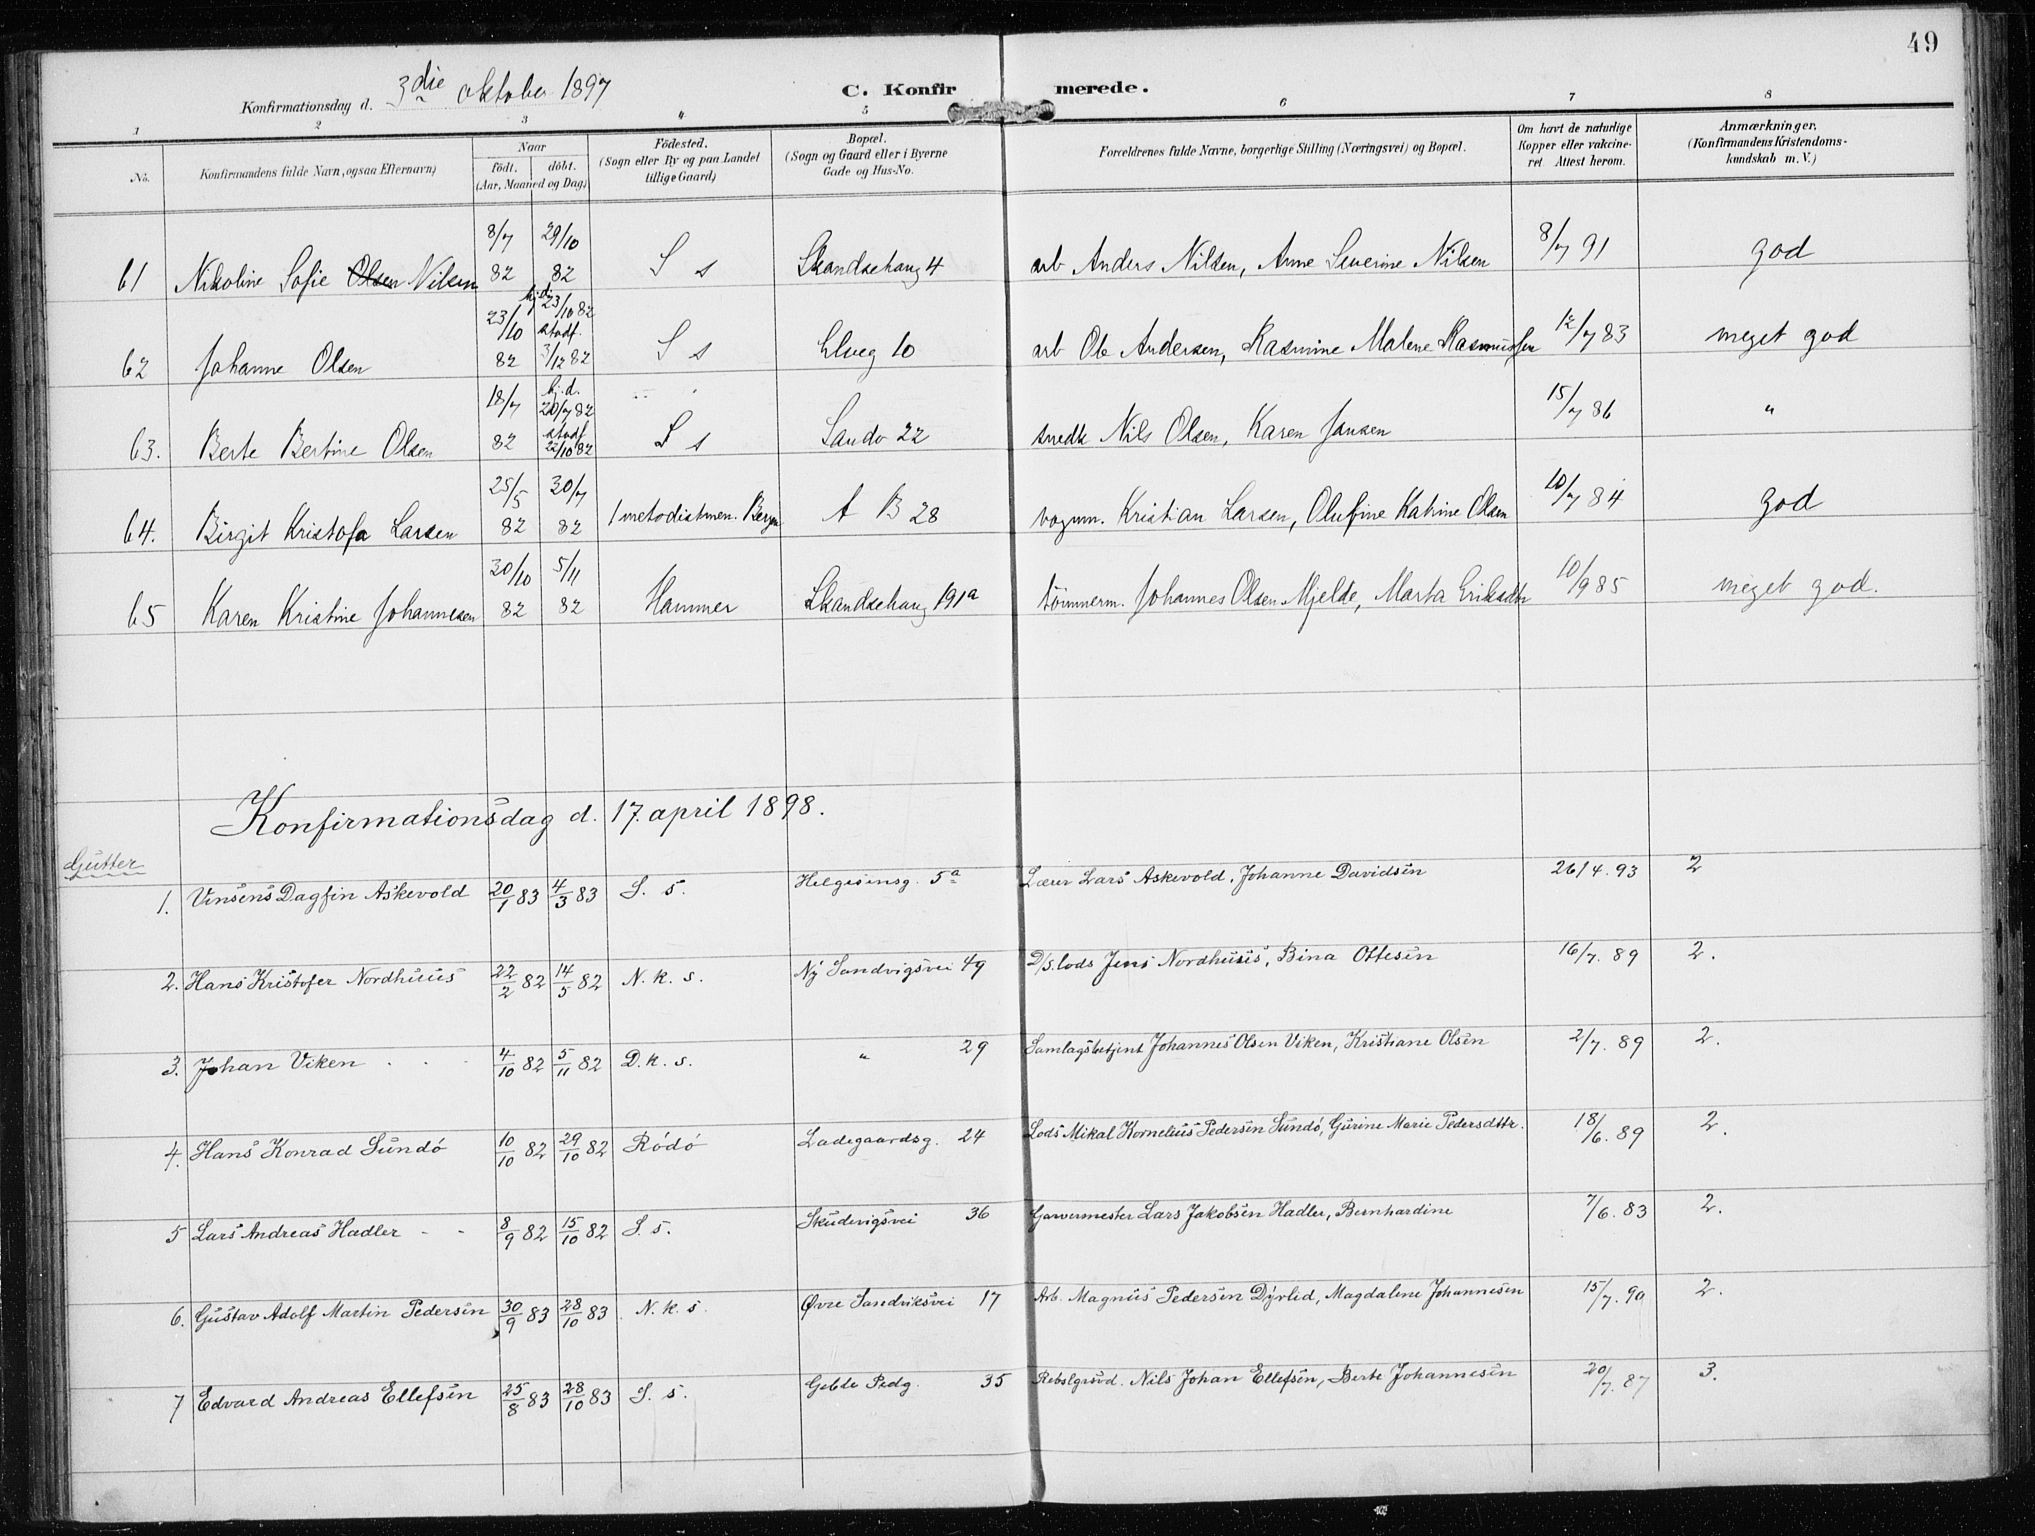 49
Konfirmationsdag d. 3die oktober 1897 C. Konfirmerede.
1 2 3 4 5 6 7 8
No. Konfirmandens fulde Navn, ogsaa Efternavn) Naar födt. döbt. (Aar, Maaned og Dag) Födested. (Sogn eller By og paa Landet tillige Gaard) Bopæl. (Sogn og Gaard eller i Byerne Gade og Hus-No. Forældrenes fulde Navne, borgerlige Stilling (Næringsvei) og Bopæl. Om havt de naturlige Kopper eller vakcineret Attest herom. Anmærkninger. (Konfirmandens Kristendomskundskab m. V.)
61 Nikoline Sofie Olsen Nilsen 8/7 82 29/10 82 S s Skandsehaug 4 arb Anders Nilsen, Anne Severine Nilsen 8/7 91 god
62 Johanne Olsen 23/10 82 hj.d. 23/10 82 stadf. 3/12 82 S s Elveg 10 arb Ole Andersen, Rasmine Malene Rasmussen 12/7 83 meget god
63. Berte Bertine Olsen 18/7 82 hj.d. 20/7 82 stadf 22/10 82 S s Sandv 22 snedk Nils Olsen, Karen Jansen 15/7 86 "
64. Birgit Kristofa Larsen 25/5 82 30/7 82 i metodistmen. Bergen A B 28 vognm. Kristian Larsen, Olufine Katrine Olsen 10/7 84 god
65 Karen Kristine Johannesen 30/10 82 5/11 82 Hammer Skandsehaug 191a tömmerm. Johannes Olsen Mjelde, Marta Eriksdtr 10/9 85 meget god.
Konfirmationsdag d. 17. april 1898.
Gutter
1. Vinsens Dagfin Askevold 20/1 83 4/3 83 S. s. Helgesensg. 5a Lærer Lars Askevold, Johanne Davidsen 26/4. 93 2
2. Hans Kristofer Nordhuus 22/2 82 14/5 82 N. k. s. Ny Sandvigsvei 49 D/s.lods Jens Nordhuus, Bina Ottesen 16/7. 89 2.
3. Johan Viken 4/10 82 5/11 82 D. k. s. " 29 Samlagsbetjent Johannes Olsen Viken, Kristiane Olsen 2/7. 89 2.
4. Hans Konrad Sundö 10/10 82 29/10 82 Rödö Ladegaardsg. 24 Lods Mikal Kornelius Pedersen Sundö, Gurine Marie Pedersdttr. 18/6. 89 2.
5 Lars Andreas Hadler 8/9 82 15/10 82 S. s. Skudevigsvei 36 Garvermester Lars Jakobsen Hadler, Bernhardine 7/6. 83 2.
6. Gustav Adolf Martin Pedersen 30/9 83 28/10 83 N. k. s. Øvre Sandviksvei 17 Arb. Magnus Pedersen Dyrlid, Magdalene Johannesen 15/7. 90 2.
7 Edvard Andreas Ellefsen 25/8 83 28/10 83 S. s. Gebde Prdg. 35 Rebslgrsvd. Nils Johan Ellefsen, Berte Johannesen 20/7. 87 3.